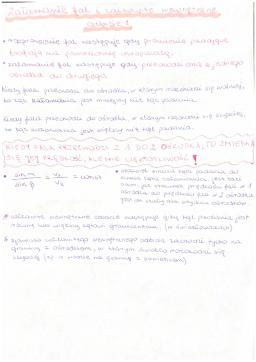 Załamanie fal i całkowite wewnętrzne odbicie!
• rozproszenie fal następuje gdy promienie padające trafiają na powierzchnię
• załamanie fal następuje gdy przechodzi ona z jednego ośrodka do drugiego
Kiedy fala przechodzi do ośrodka, w którym rozchodzi się wolniej, to kąt załamania jest mniejszy niż kąt padania.
Kiedy fala przechodzi do ośrodka, w którym rozchodzi się szybciej, to kąt załamania jest większy niż kąt padania.
KIEDY FALA PRZECHODZI Z 1 DO 2 OŚRODKA, TO ZMIENIA
SIĘ JEJ PRĘDKOŚĆ, ALE NIE CZĘSTOTLIWOŚĆ!
sin α / sin β = v₁ / v₂ = const
• stosunek sinusa kąta padania do
sinusa kąta załamania, jest taki
sam jak stosunek prędkości fali w 1
ośrodku do prędkości fali w 2 ośrodku
• całkowite wewnętrzne odbicie następuje gdy kąt padania jest
równy lub większy kątowi granicznemu. (w światłowodach)
• zjawisko całkowitego wewnętrznego odbicia zachodzi tylko na
granicy z ośrodkiem, w którym światło rozchodzi się
szybciej (np. w wodzie na granicy z powietrzem)